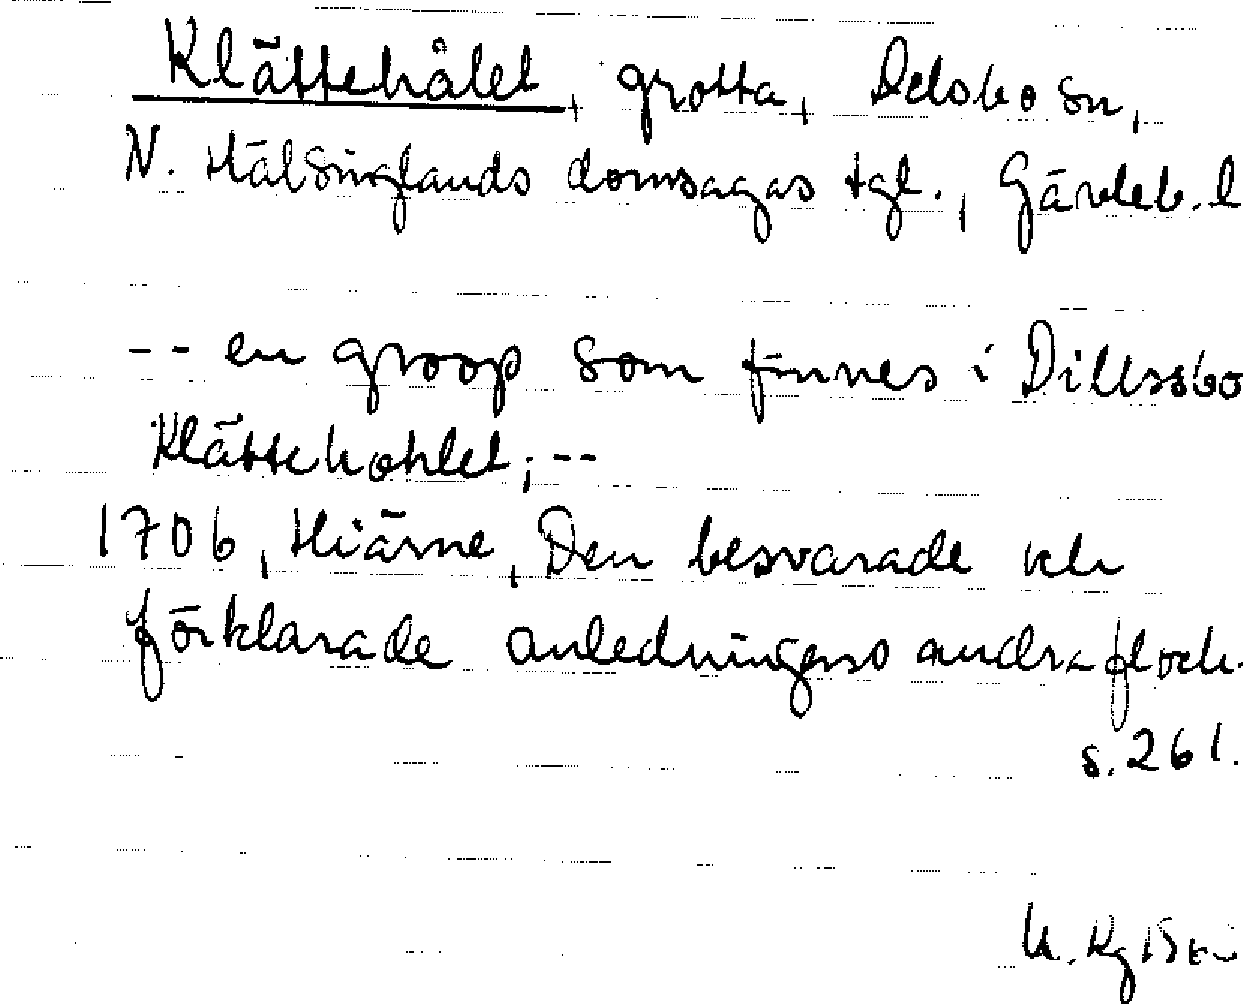 Klättehålet, grotta, Delsbo sn,
N. Hälsinglands domsagas tgl., Gävleb. l
-- en groop som finnes i Dillssbo
Klättehohlet; --
1706, Hiärne, Den besvarade och
förklarade anledningens andra flock.
s. 261.